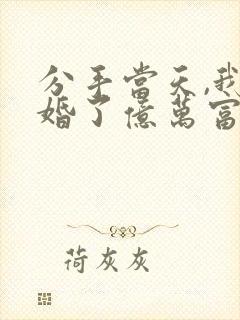 分手當天,我
婚了億萬富
荷灰灰